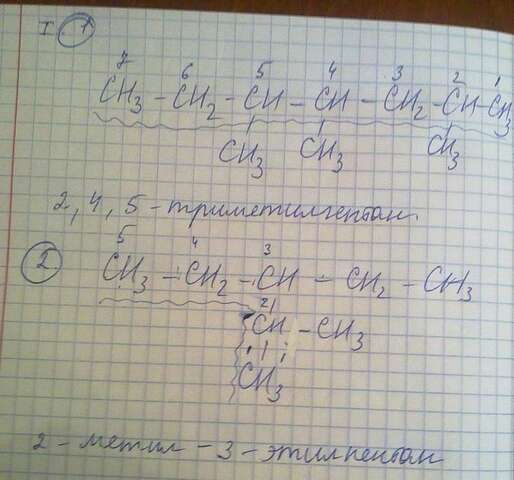 I 1
7 6 5 4 3 2 1
CH3 – CH2 – CH – CH – CH2 – CH – CH3
CH3 CH3 CH3
2, 4, 5 – триметилгептан.
2
5 4 3
CH3 – CH2 – CH – CH2 – CH3
2
CH – CH3
1
CH3
2 – метил – 3 – этилпентан